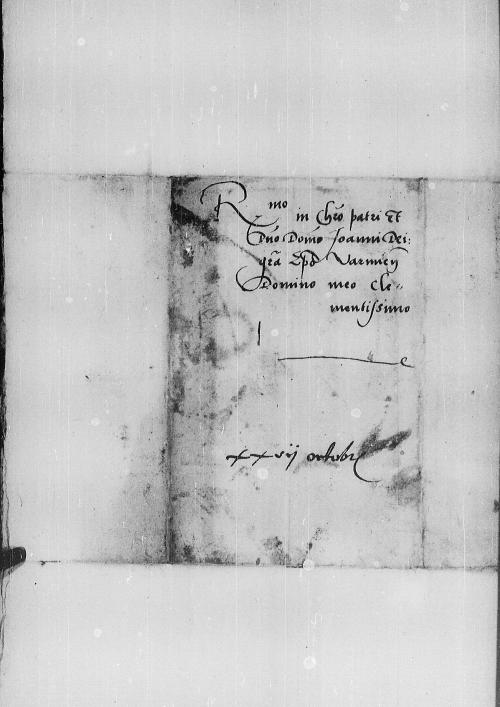 Rmo in Chro patri et
Dno Domno Joanni Dei
gra Epo Varmieñ
Domino meo Cle-
mentissimo
xxvij octobr